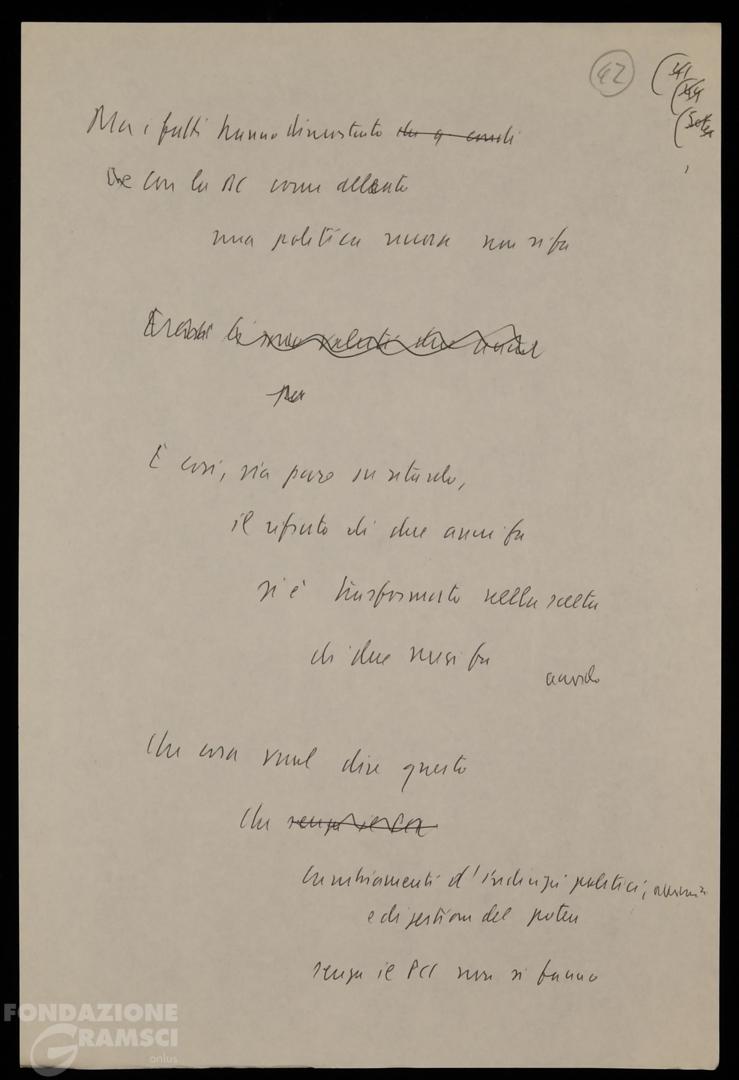 42
Ma i fatti hanno dimostrato
che con la DC come
una politica nuova non si fa
per
E così, sia pure in ritardo,
il rifiuto di due anni fa
si è trasformato nella scelta
di due mesi fa
Che cosa vuol dire questo
Che senza il PCI
cambiamenti d'indirizzi politici,
e di gestione del potere
senza il PCI non si fanno
FONDAZIONE
GRAMSCI
onlus